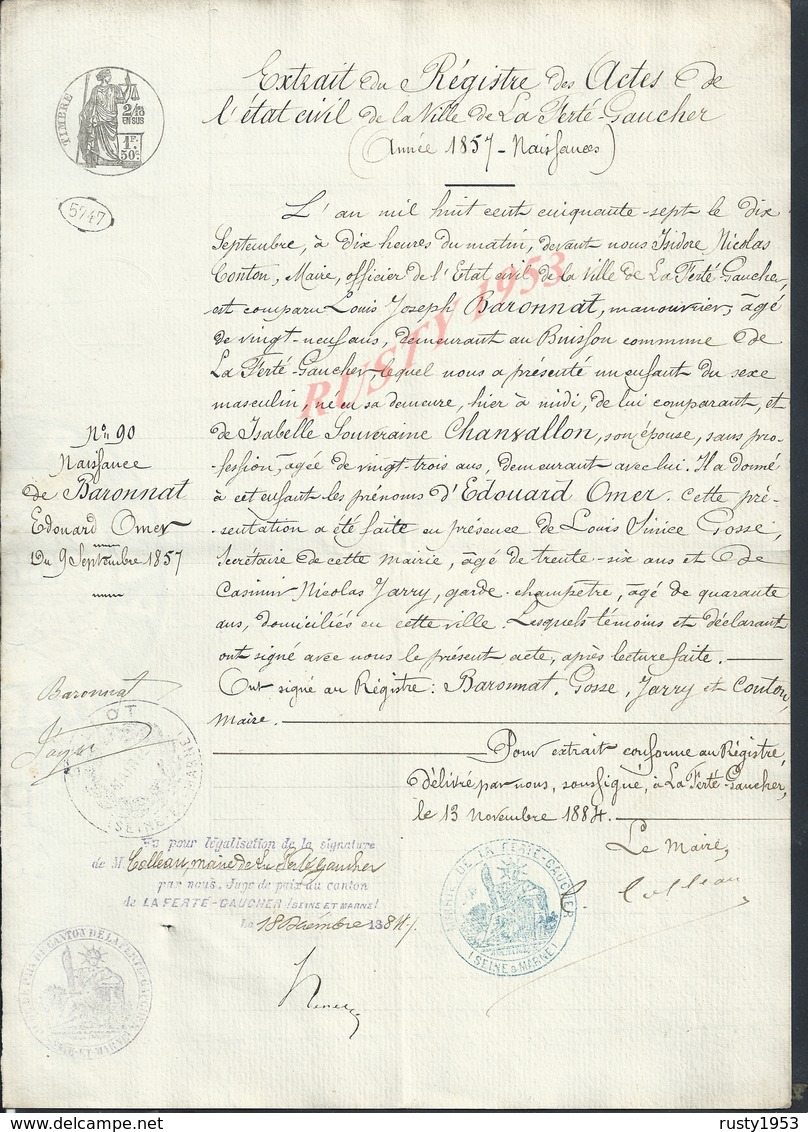 Extrait du Régistre des Actes de
l'état civil de la Ville de La Ferté-Gaucher
(Année 1857 - Naissances)
TIMBRE
2/10
EN SUS
1F.
50c.
5747
L'an mil huit cent cinquante-sept le dix
Septembre, à dix heures du matin, devant nous Isidore Nicolas
Conton, Maire, officier de l'Etat civil de la Ville de La Ferté-Gaucher,
est comparu Louis Joseph Baronnat, manouvrier, âgé
de vingt-neuf ans, demeurant au Buisson commune de
La Ferté-Gaucher, lequel nous a présenté un enfant du sexe
masculin, né en sa demeure, hier à midi, de lui comparant, et
de Isabelle Souveraine Chanvallon, son épouse, sans pro-
fession, âgée de vingt-trois ans, demeurant avec lui. Il a donné
à cet enfant les prénoms d'Edouard Omer. Cette pré-
sentation a été faite en présence de Louis Gosse,
Secrétaire de cette mairie, âgé de trente-six ans et de
Casimir Nicolas Jarry, garde-champêtre, âgé de quarante
ans, domiciliés en cette ville. Lesquels témoins et déclarant
ont signé avec nous le présent acte, après lecture faite.
Ont signé au Régistre: Baronnat, Gosse, Jarry et Conton,
Maire.
N° 90
Naissance
de Baronnat
Edouard Omer
Du 9 Septembre 1857
Baronnat
Pour extrait conforme au Régistre,
délivré par nous, soussigné, à La Ferté-Gaucher,
le 13 novembre 1884.
Le Maire,
Colleau
MAIRIE DE LA FERTÉ-GAUCHER
(SEINE & MARNE)
Vu pour légalisation de la signature
de M. Colleau, maire de La Ferté Gaucher
par nous, Juge de paix du canton
de LA FERTÉ-GAUCHER (SEINE ET MARNE)
Le 18 Décembre 1884.
RUSTY 1953
rusty1953